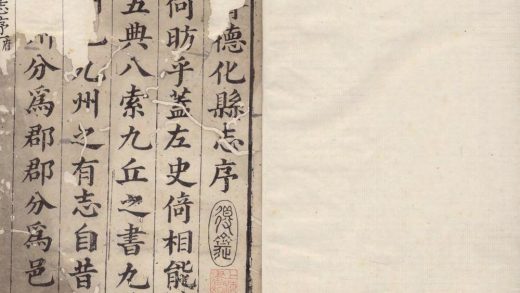 德化縣志序
何昉乎蓋左史倚相能
五典八索九丘之書九
九州之有志自昔
分為郡郡分為邑
志序